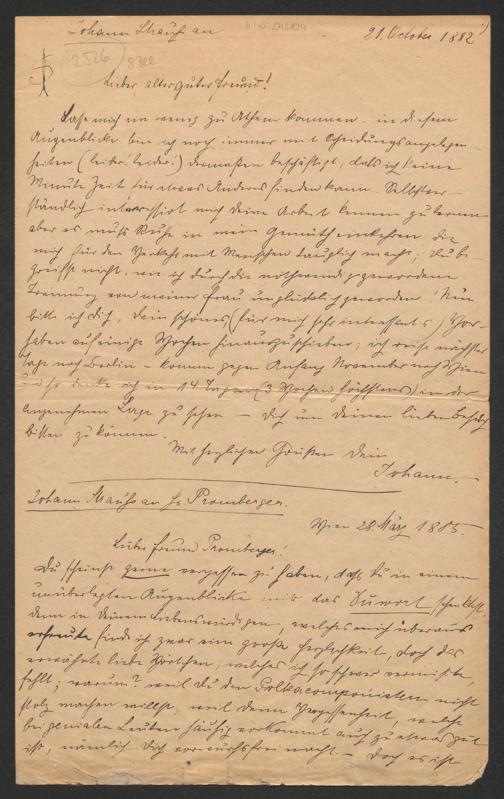 Johann Strauß an
21. October 1882
2526
Lieber alter guter Freund!
Lasse mich ein wenig zu Athem kommen – in diesem
Augenblicke bin ich noch immer mit Scheidungsangelegen-
heiten (leider! leider!) dermaßen beschäftigt, daß ich keine
Minute Zeit für etwas Anderes finden kann. Selbstver-
ständlich interessirt mich deine Arbeit kennen zu lernen
aber es muß Ruhe in mein Gemüth einkehren, die
mich für den Verkehr mit Menschen tauglich macht; Du be-
greifst nicht, wie ich durch die nothwendig gewordene
Trennung von meiner Frau unglücklich geworden! Nun
bitte ich dich, Dein schönes, (für mich sehr interessantes) Vor-
haben auf einige Wochen hinauszuschieben; ich reise nächster
Tage nach Berlin – komme gegen Anfang November nach Wien
und so denke ich in 14 Tagen (3 Wochen höchstens) in der
angenehmen Lage zu sehen – dich um deinen lieben Besuch
bitten zu können.
Mit herzlichen Grüßen Dein
Johann.
Johann Strauß an Hs. Promberger.
Wien 28. März 1885.
Lieber Freund Promberger!
Du scheinst gerne vergessen zu haben, daß du in einem
unüberlegten Augenblicke mir das Duwort schenktest,
denn in Deinem Liebenswürdigen, welches mich überaus
erfreute finde ich zwar eine große Herzlichkeit, doch das
erwähnte liebe Wörtchen, welches ich so schwer vermißte,
fehlt; warum? weil Du den Polkacomponisten nicht
stolz machen willst, weil Deine Vergessenheit, welche
bei genialen Leuten häufig vorkommt auch zu etwas gut
ist, nämlich Dich vorwurfsfrei macht. – Doch es ist